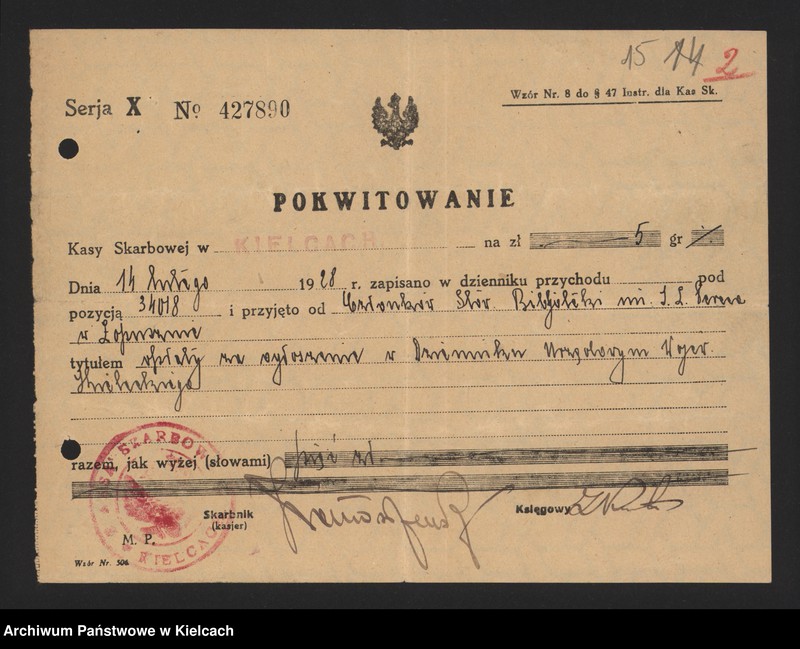 15 14 2
Serja X № 427890
Wzór Nr. 8 do § 47 Instr. dla Kas Sk.
POKWITOWANIE
Kasy Skarbowej w KIELCACH na zł 5 gr
Dnia 14 lutego 1928 r. zapisano w dzienniku przychodu pod
pozycją 34018 i przyjęto od Członków Stow. Bibljoteki im. I. L. Pereca
w Łopusznie
tytułem opłaty za ogłoszenie w Dzienniku Urzędowym Wojew.
Kieleckiego
razem, jak wyżej (słowami) pięć zł.
KASA SKARBOWA
W KIELCACH
Skarbnik
(kasjer)
Księgowy
M. P.
Wzór Nr. 506
Archiwum Państwowe w Kielcach